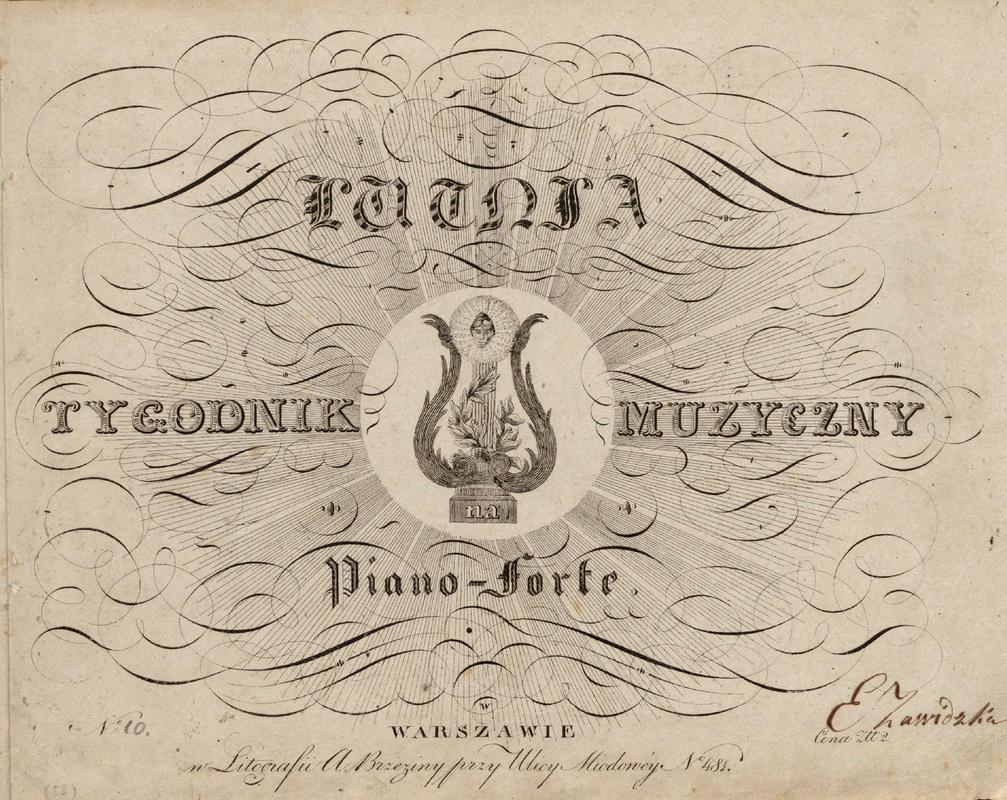 LUTNIA
TYGODNIK MUZYCZNY
na
Piano-Forte.
w
WARSZAWIE
No 10.
E Zawidzka
Cena Zł 2
w Litografii A. Brzeziny przy Ulicy Miodowéy No 481.
(58)